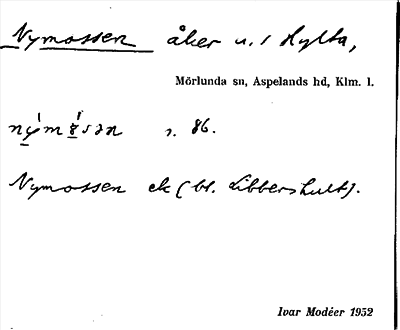 Nymossen åker u. / Hylta,
Mörlunda sn, Aspelands hd, Klm. l.
s. 86.
Nymossen ek (bl. Libbershult).
Ivar Modéer 1952